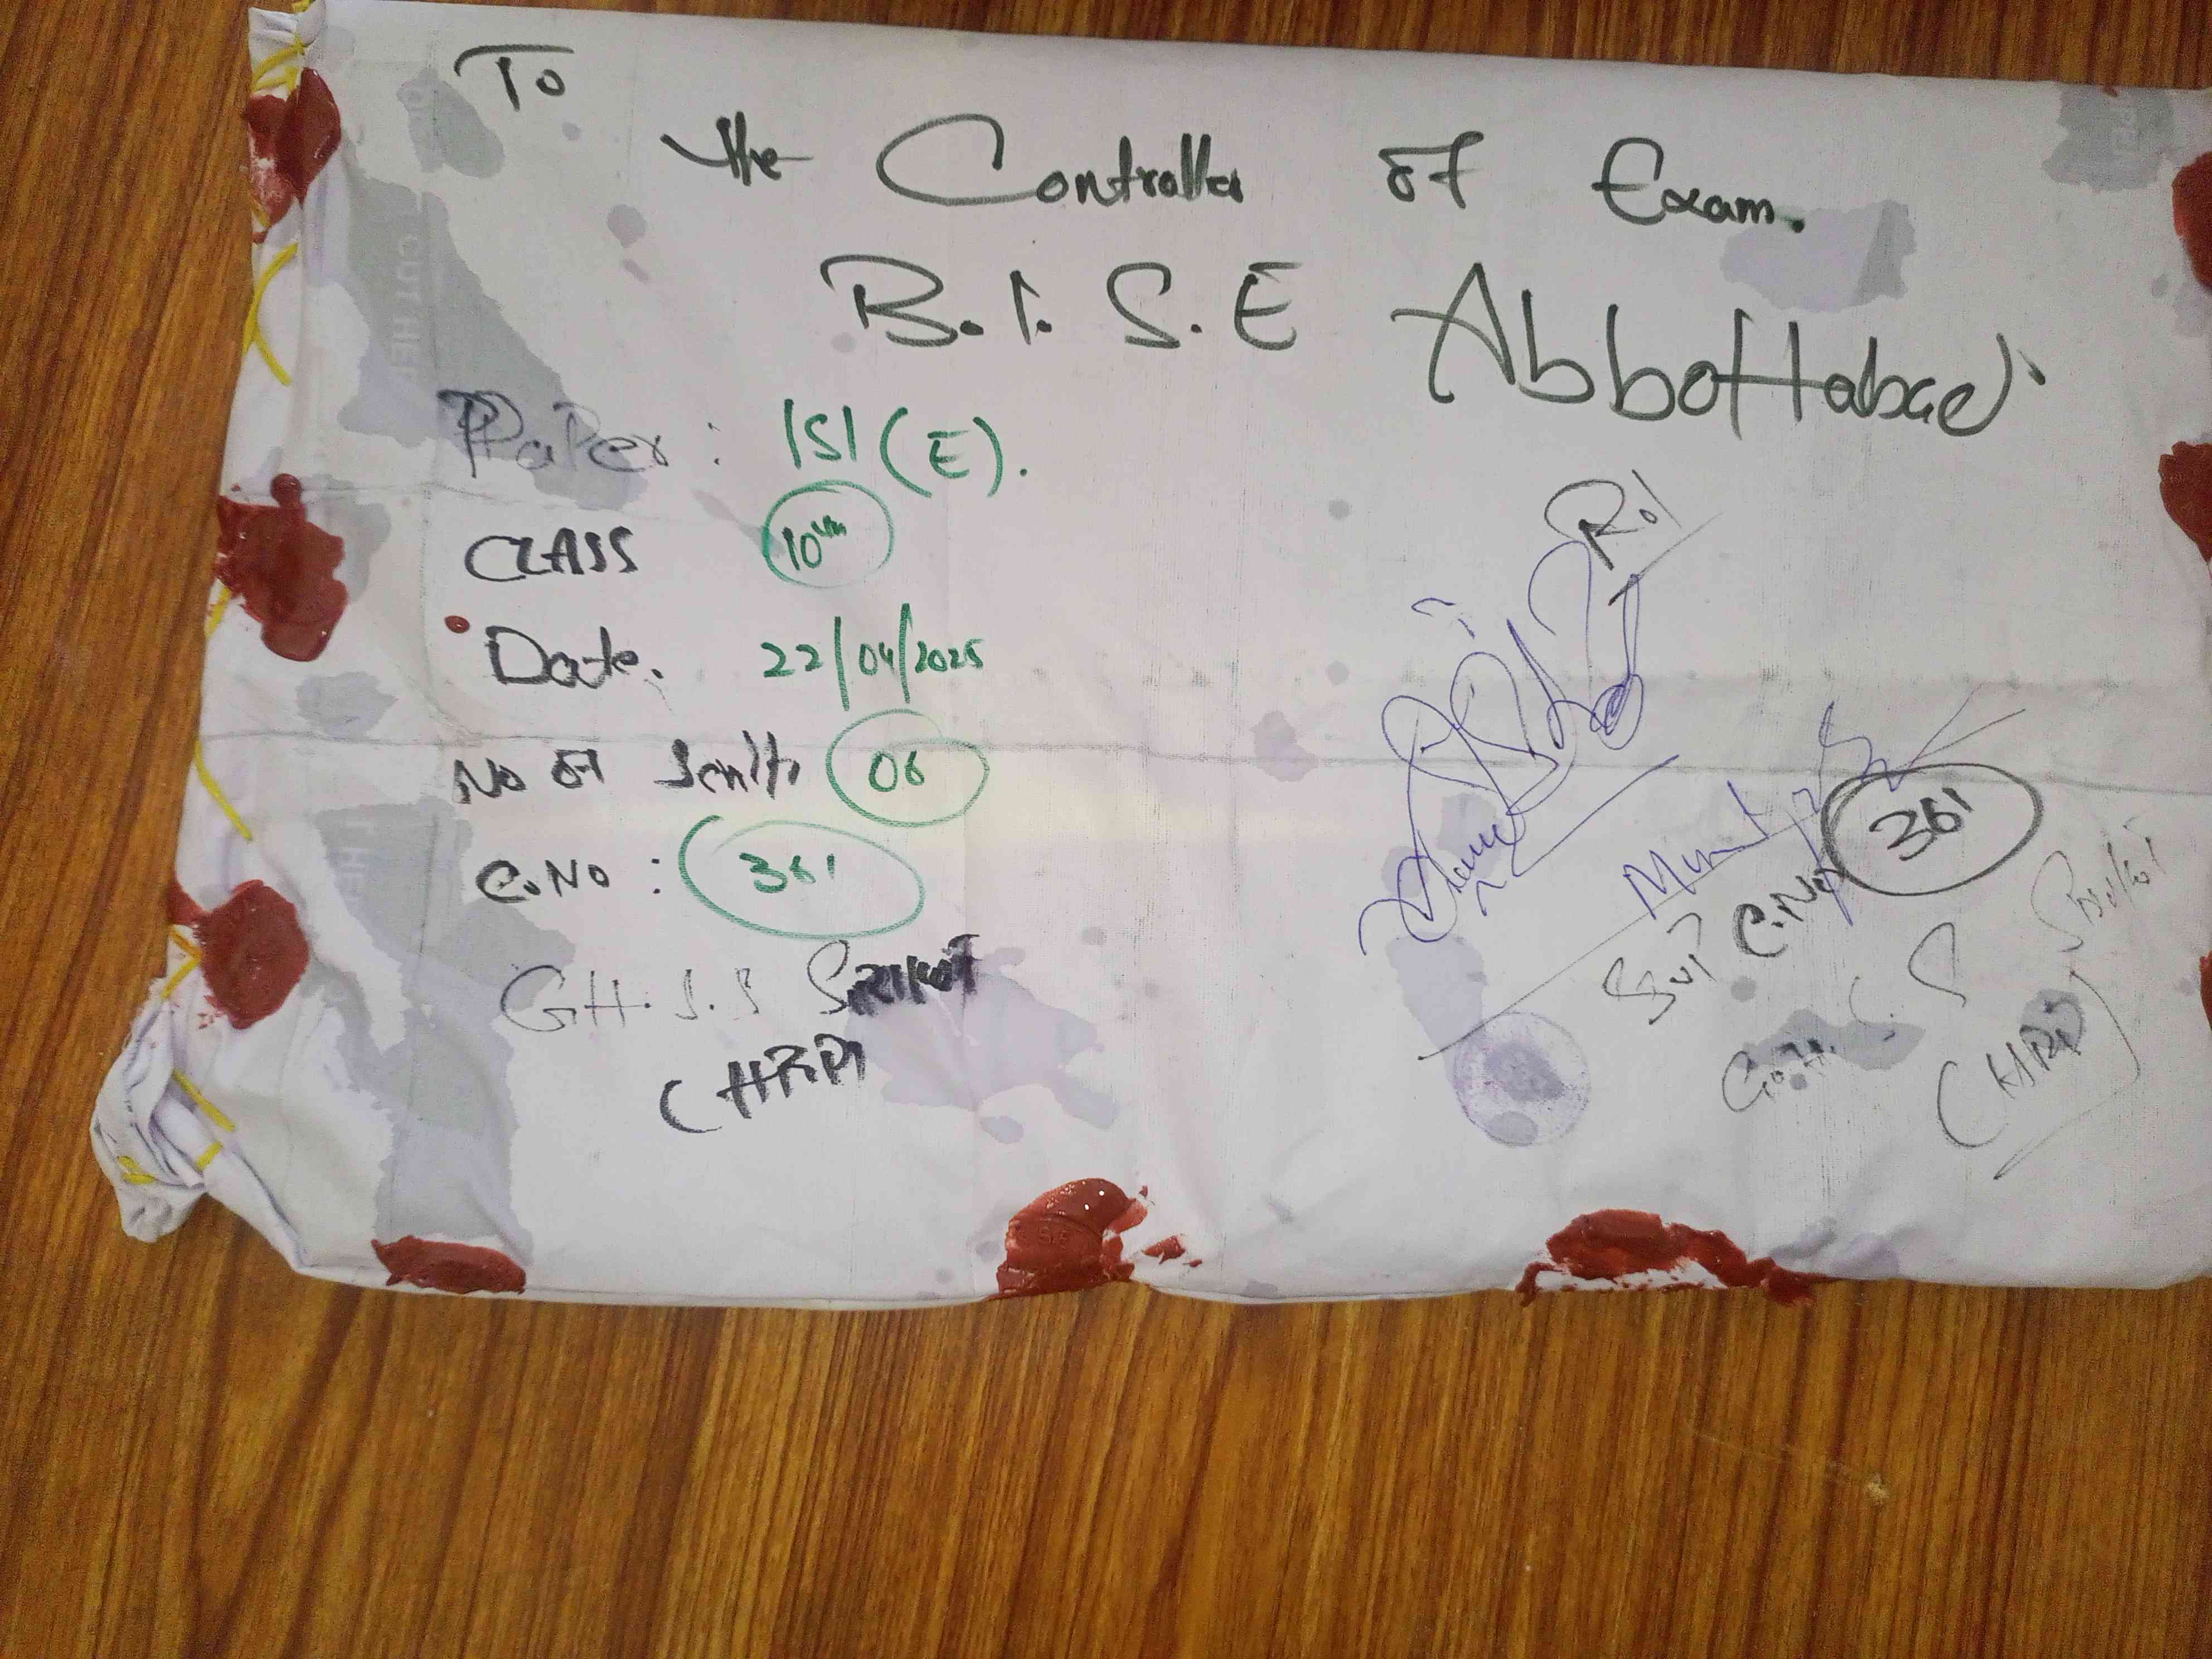 To
the Controller of Exam.
B.I.S.E Abbottabad
Paper: ISI (E).
CLASS 10th
Date. 22/04/2025
No of 06
C.No: 361
G.H.S.S Serikot
(HRP)
R.I
Supt C.No 361
G.H.S.S Serikot
(HRP)